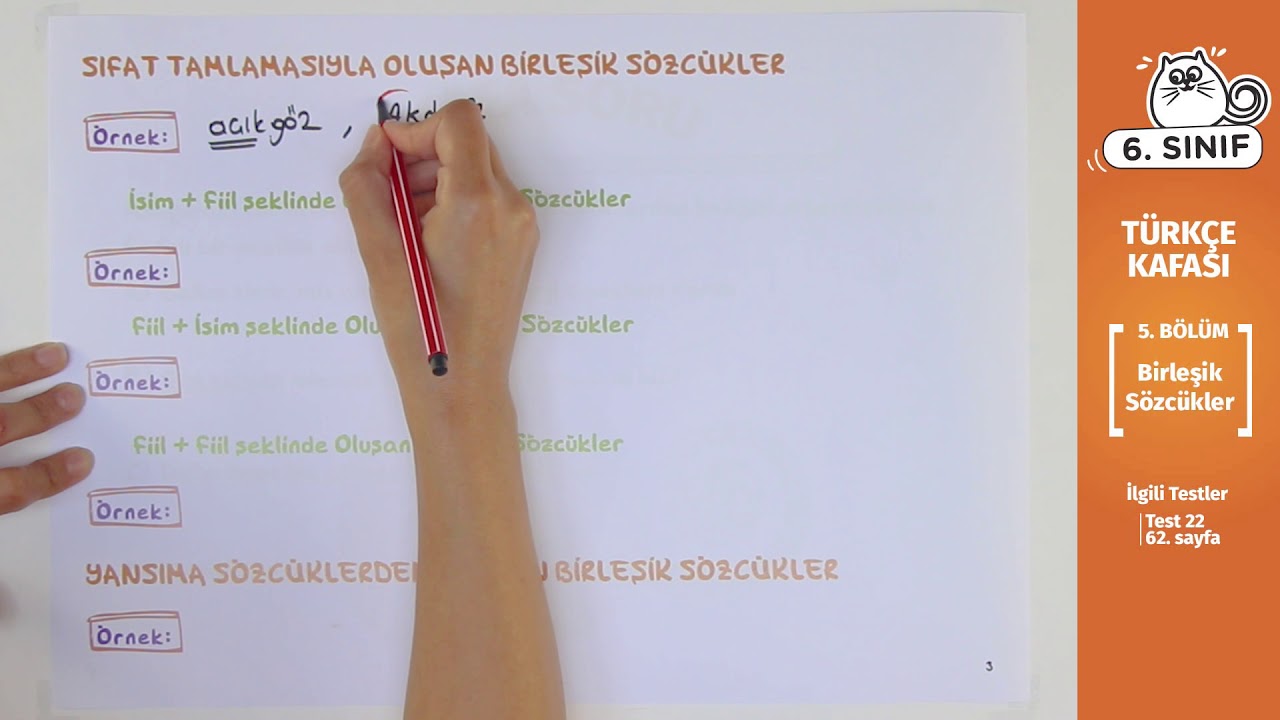 SIFAT TAMLAMASIYLA OLUŞAN BİRLEŞİK SÖZCÜKLER
Örnek: açıkgöz ,
İsim + Fiil şeklinde Sözcükler
Örnek:
Fiil + İsim şeklinde Sözcükler
Örnek:
Fiil + Fiil şeklinde Oluşan Sözcükler
Örnek:
YANSIMA BİRLEŞİK SÖZCÜKLER
Örnek:
3
6. SINIF
TÜRKÇE
KAFASI
5. BÖLÜM
Birleşik
Sözcükler
İlgili Testler
Test 22
62. sayfa